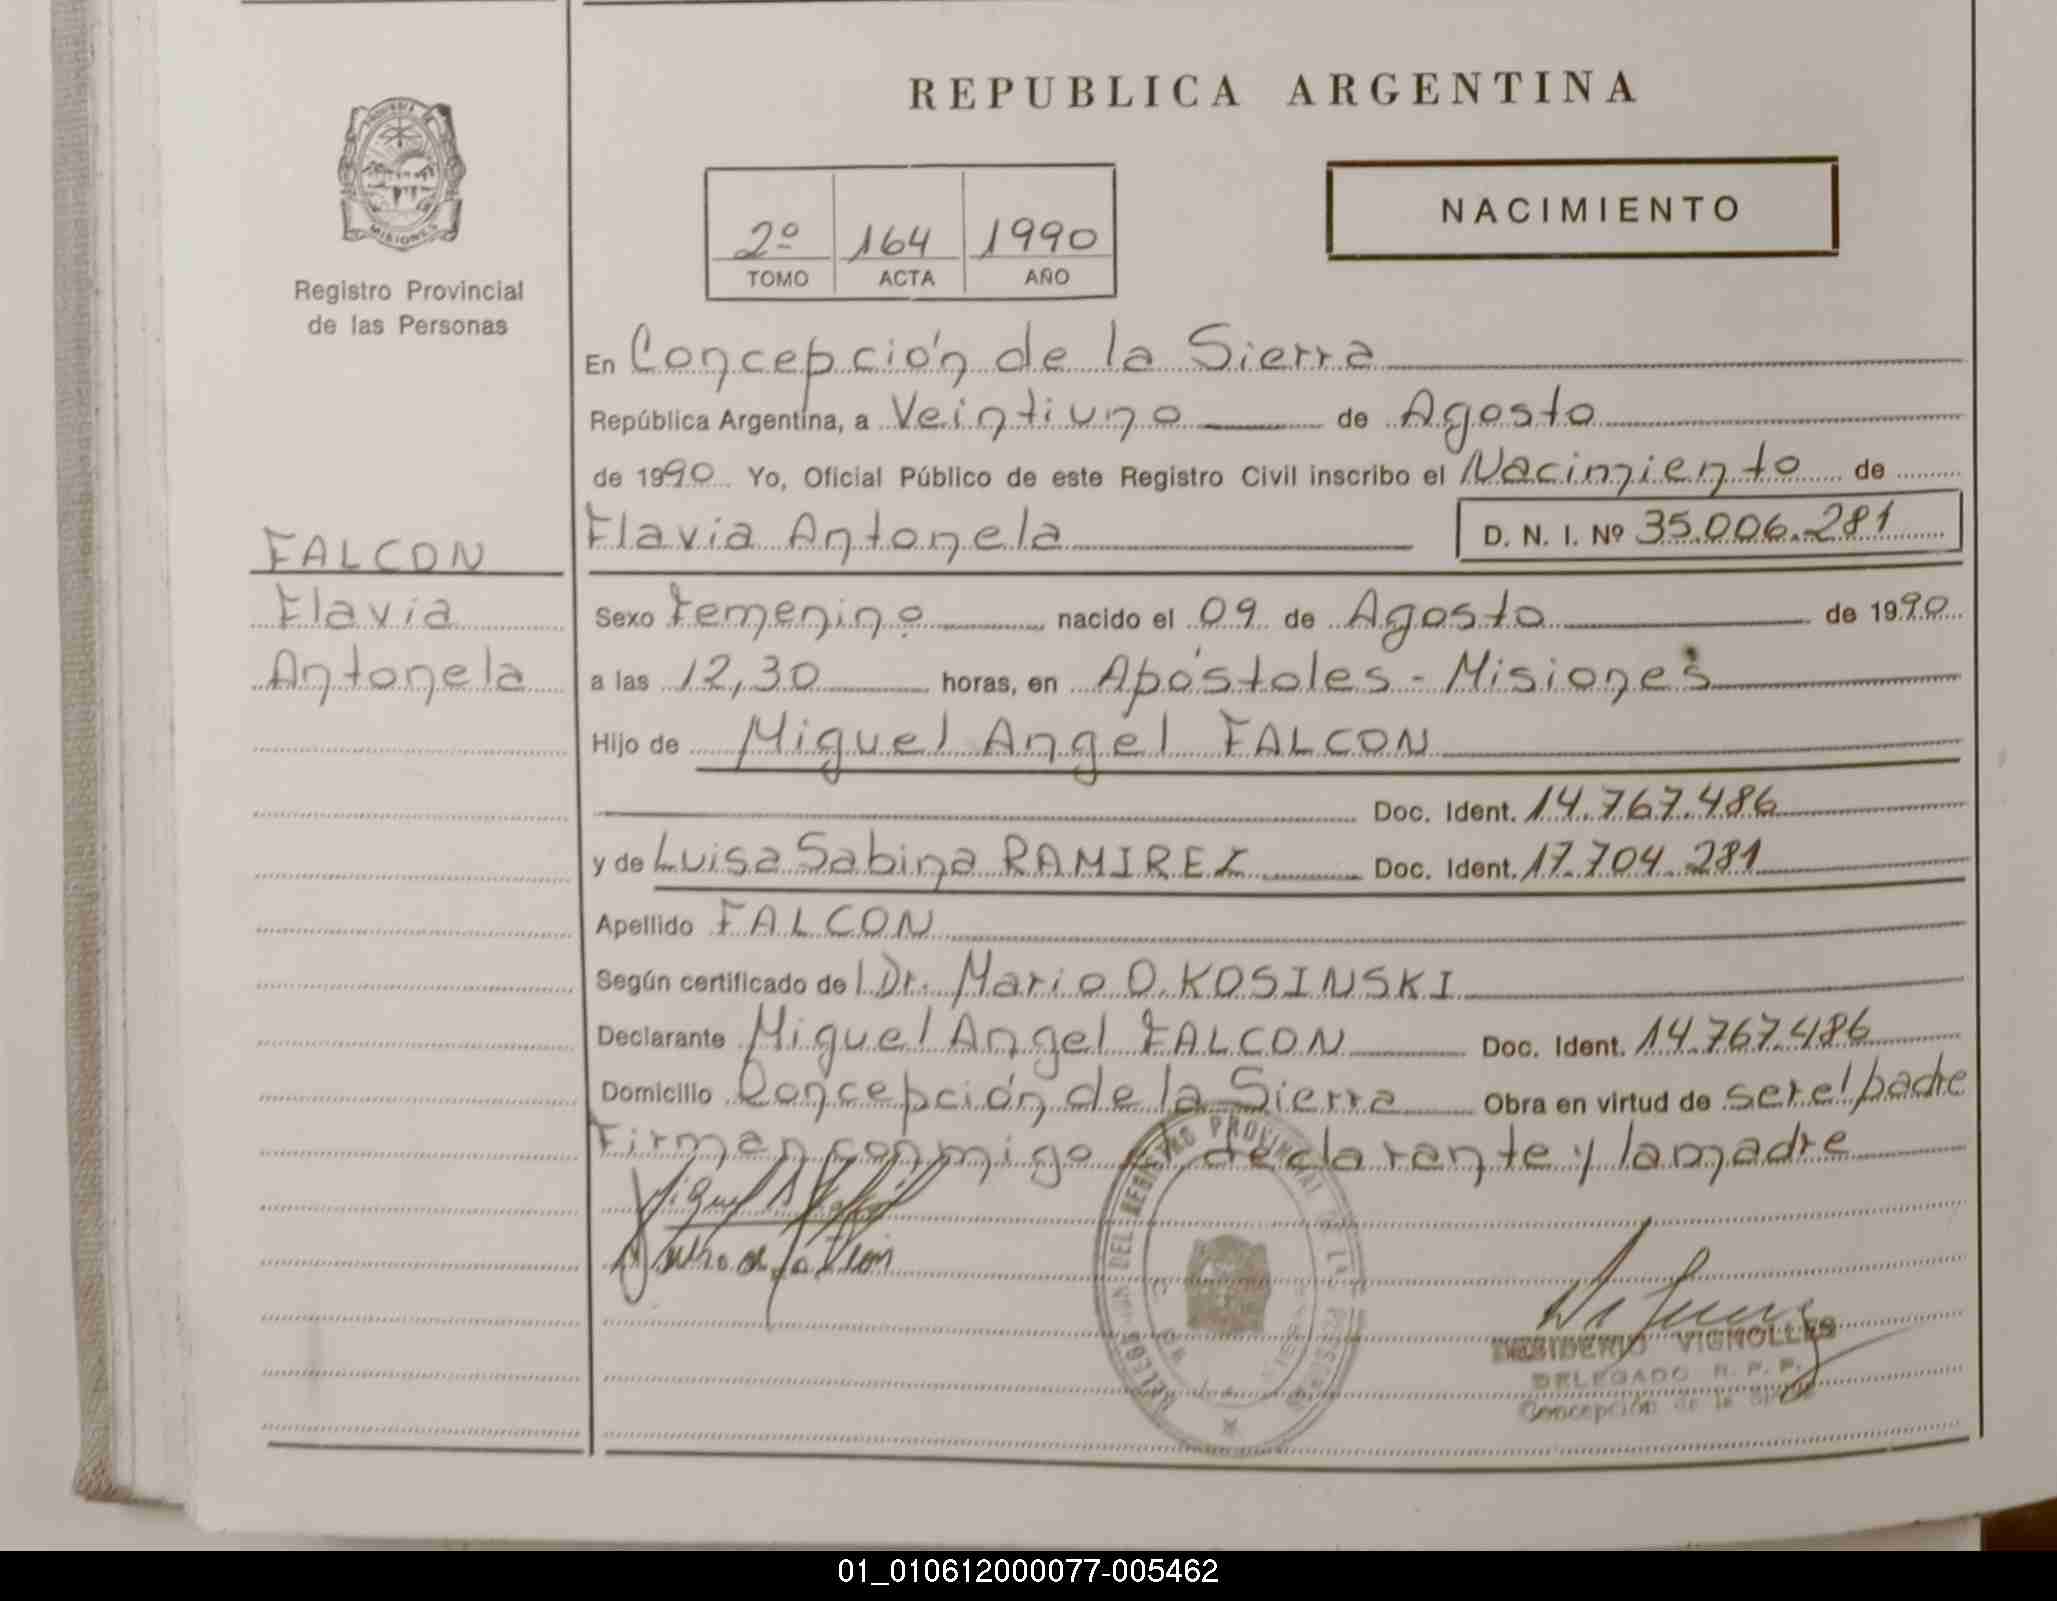 REPUBLICA ARGENTINA
PROVINCIA
MISIONES
Registro Provincial
de las Personas
2º 164 1990
TOMO ACTA AÑO
NACIMIENTO
En Concepción de la Sierra
República Argentina, a Veintiuno de Agosto
de 1990 Yo, Oficial Público de este Registro Civil inscribo el Nacimiento de
FALCON
Flavia
Antonela
Flavia Antonela D. N. I. Nº 35.006.281
Sexo Femenino nacido el 09 de Agosto de 1990
a las 12,30 horas, en Apóstoles - Misiones
Hijo de Miguel Angel FALCON
Doc. Ident. 14.767.486
y de Luisa Sabina RAMIREZ Doc. Ident. 17.704.281
Apellido FALCON
Según certificado de l Dr. Mario O. KOSINSKI
Declarante Miguel Angel FALCON Doc. Ident. 14.767.486
Domicilio Concepción de la Sierra Obra en virtud de ser el padre
Firman conmigo el declarante y la madre
Miguel A
DEL REGISTRO PROVINCIAL DE LAS
DESIDERIO VIGNOLLES
DELEGADO R. P. P.
Concepción de la Sierra
01_010612000077-005462